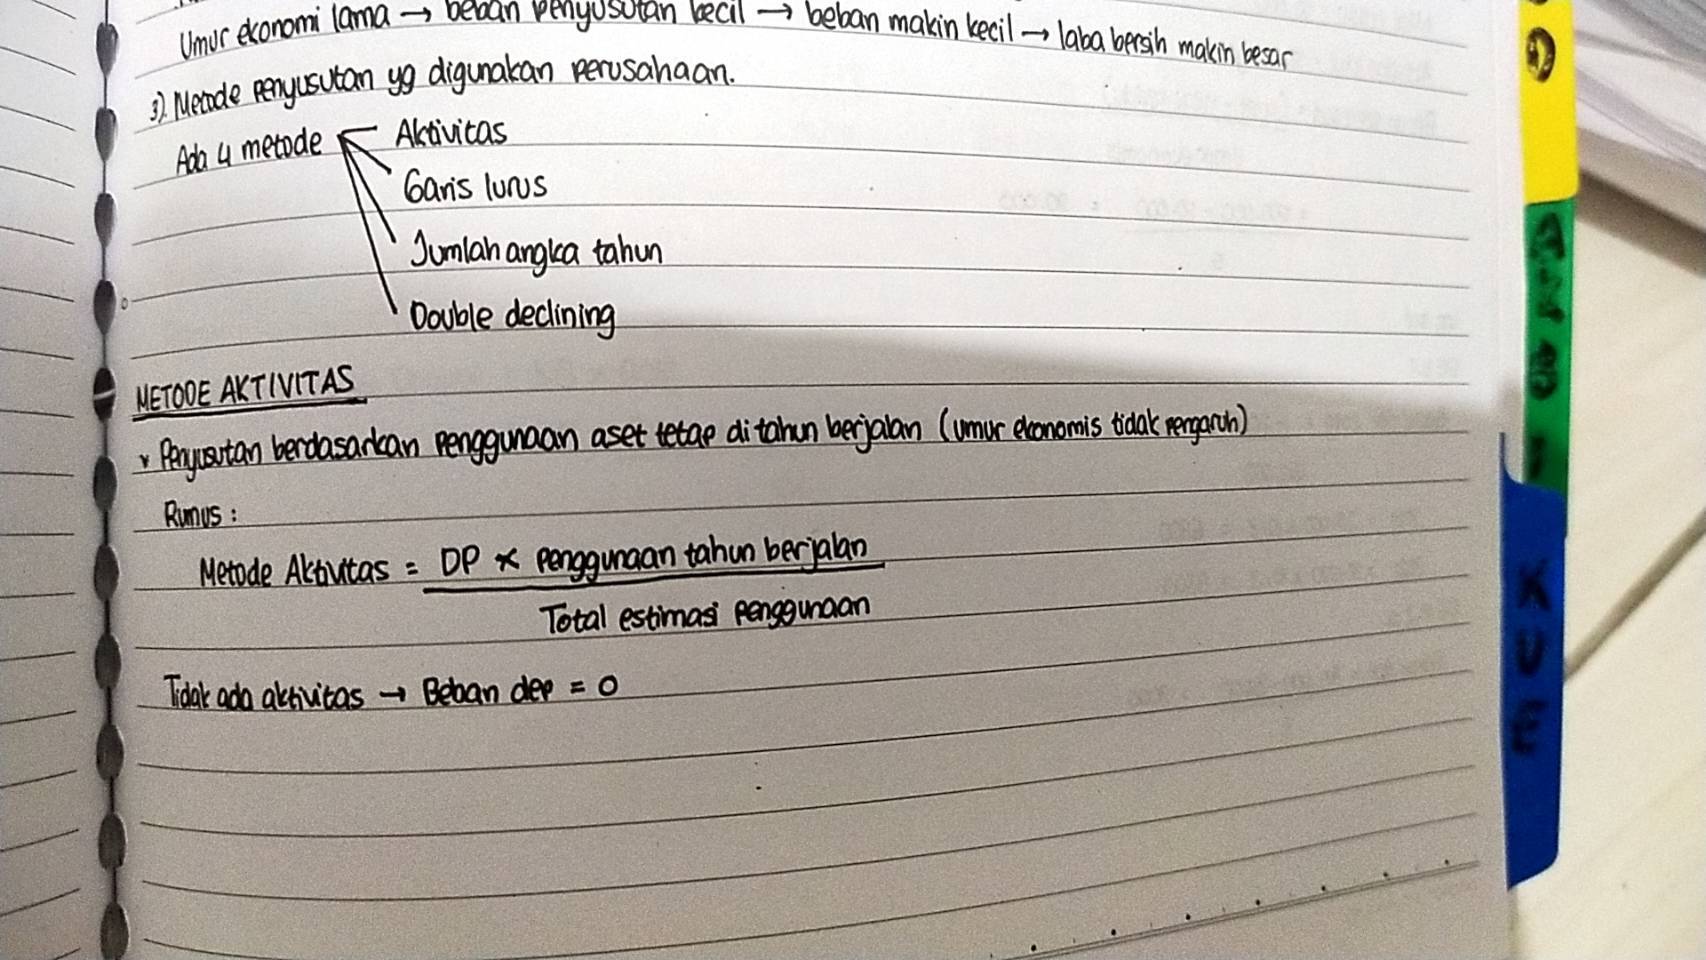 Umur ekonomi lama → beban penyusutan kecil → beban makin kecil → laba bersih makin besar
3). Metode penyusutan yg digunakan perusahaan.
Ada 4 metode Aktivitas
Garis lurus
Jumlah angka tahun
Double declining
METODE AKTIVITAS
Penyusutan berdasarkan penggunaan aset tetap di tahun berjalan (umur ekonomis tidak pengaruh)
Rumus :
Metode Aktivitas = DP × penggunaan tahun berjalan
Total estimasi penggunaan
Tidak ada aktivitas → Beban dep = 0